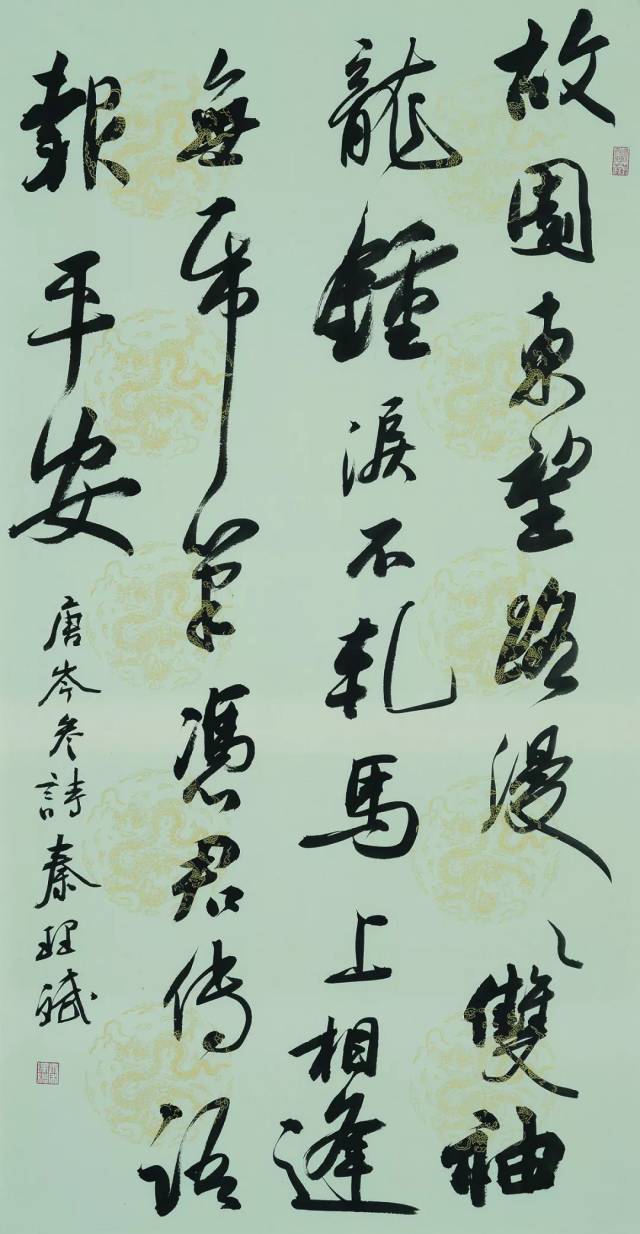 故園東望路漫〻雙袖
龍鍾淚不乾馬上相逢
無帋筆憑君傳語
報平安
唐岑參詩秦理斌